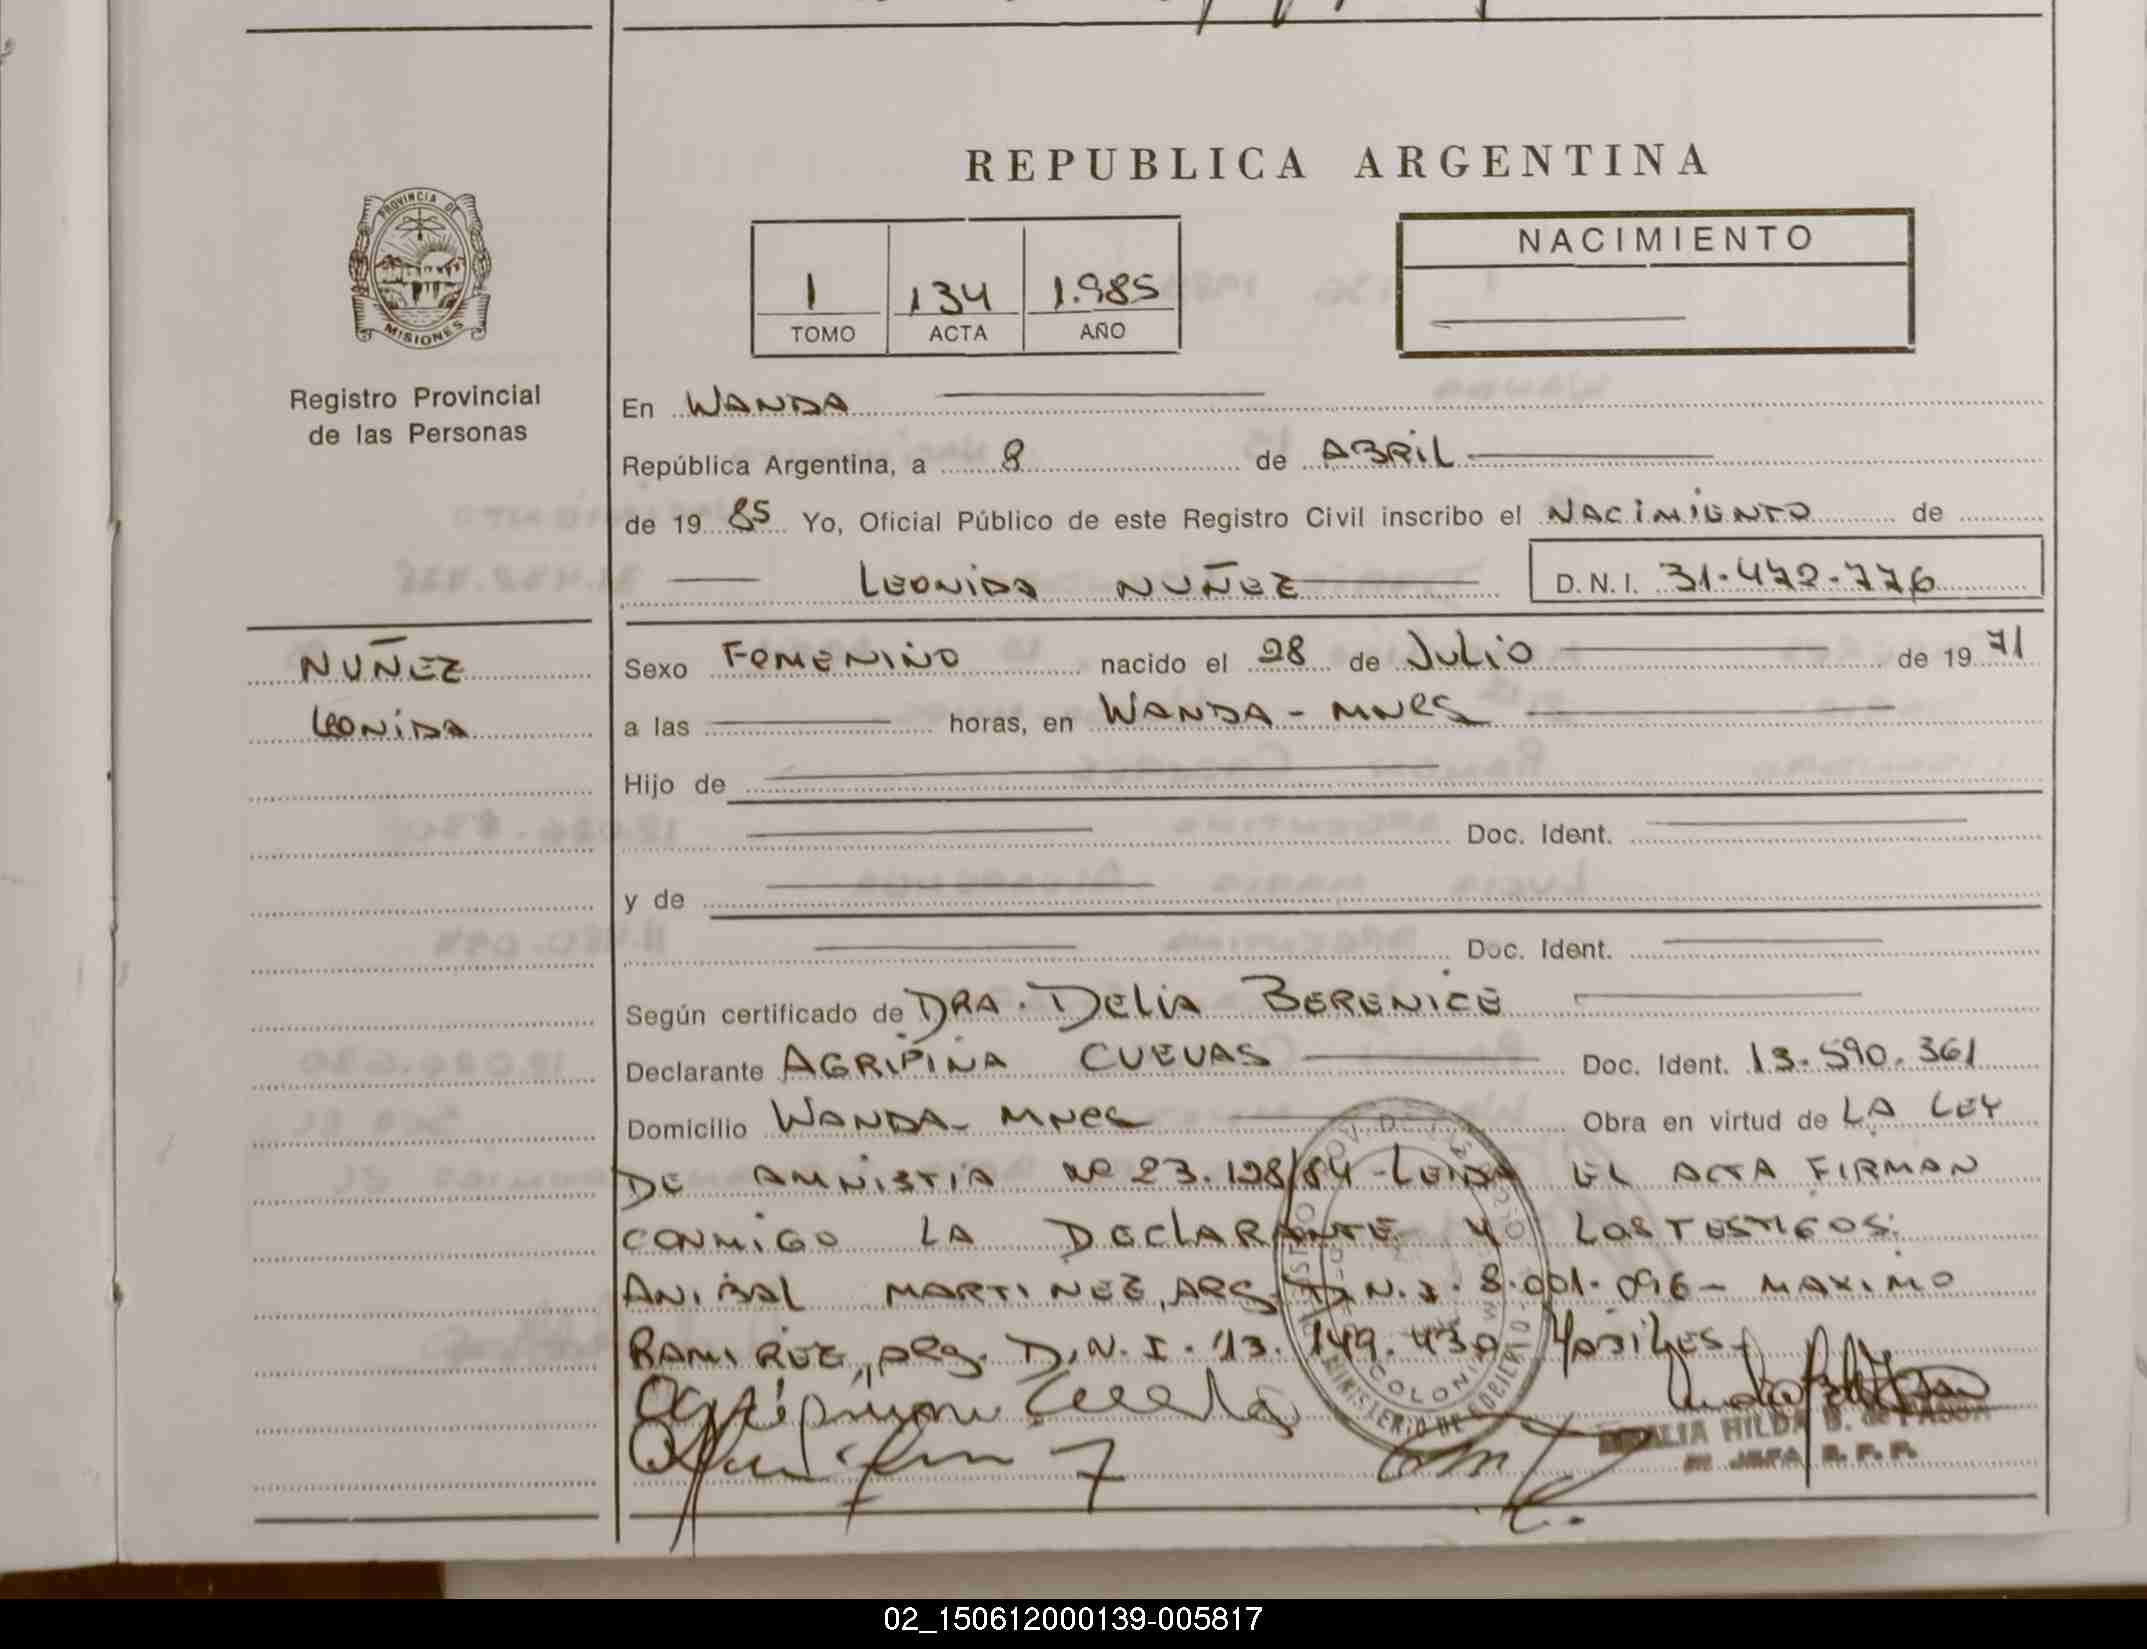 REPUBLICA ARGENTINA
PROVINCIA DE
MISIONES
Registro Provincial
de las Personas
1 134 1.985
TOMO ACTA AÑO
NACIMIENTO
En WANDA
República Argentina, a 8 de ABRIL
de 19 85 Yo, Oficial Público de este Registro Civil inscribo el NACIMIENTO de
LEONIDA NUÑEZ D.N.I. 31.472.776
NUÑEZ
LEONIDA
Sexo FEMENINO nacido el 28 de JULIO de 19 71
a las horas, en WANDA - MNES
Hijo de
Doc. Ident.
y de
Doc. Ident.
Según certificado de DRA. DELIA BERENICE
Declarante AGRIPINA CUEVAS Doc. Ident. 13.590.361
Domicilio WANDA - MNES Obra en virtud de LA LEY
DE AMNISTIA Nº 23.128/84 - LEIDA EL ACTA FIRMAN
CONMIGO LA DECLARANTE Y LOS TESTIGOS:
ANIBAL MARTINEZ, ARG. D.N.I. 8.001.096 - MAXIMO
RAMIREZ, ARG. D.N.I. 13.149.430 HABILES
MINISTERIO DE GOBIERNO
HILDA B. de
JEFA R. P. P.
02_150612000139-005817